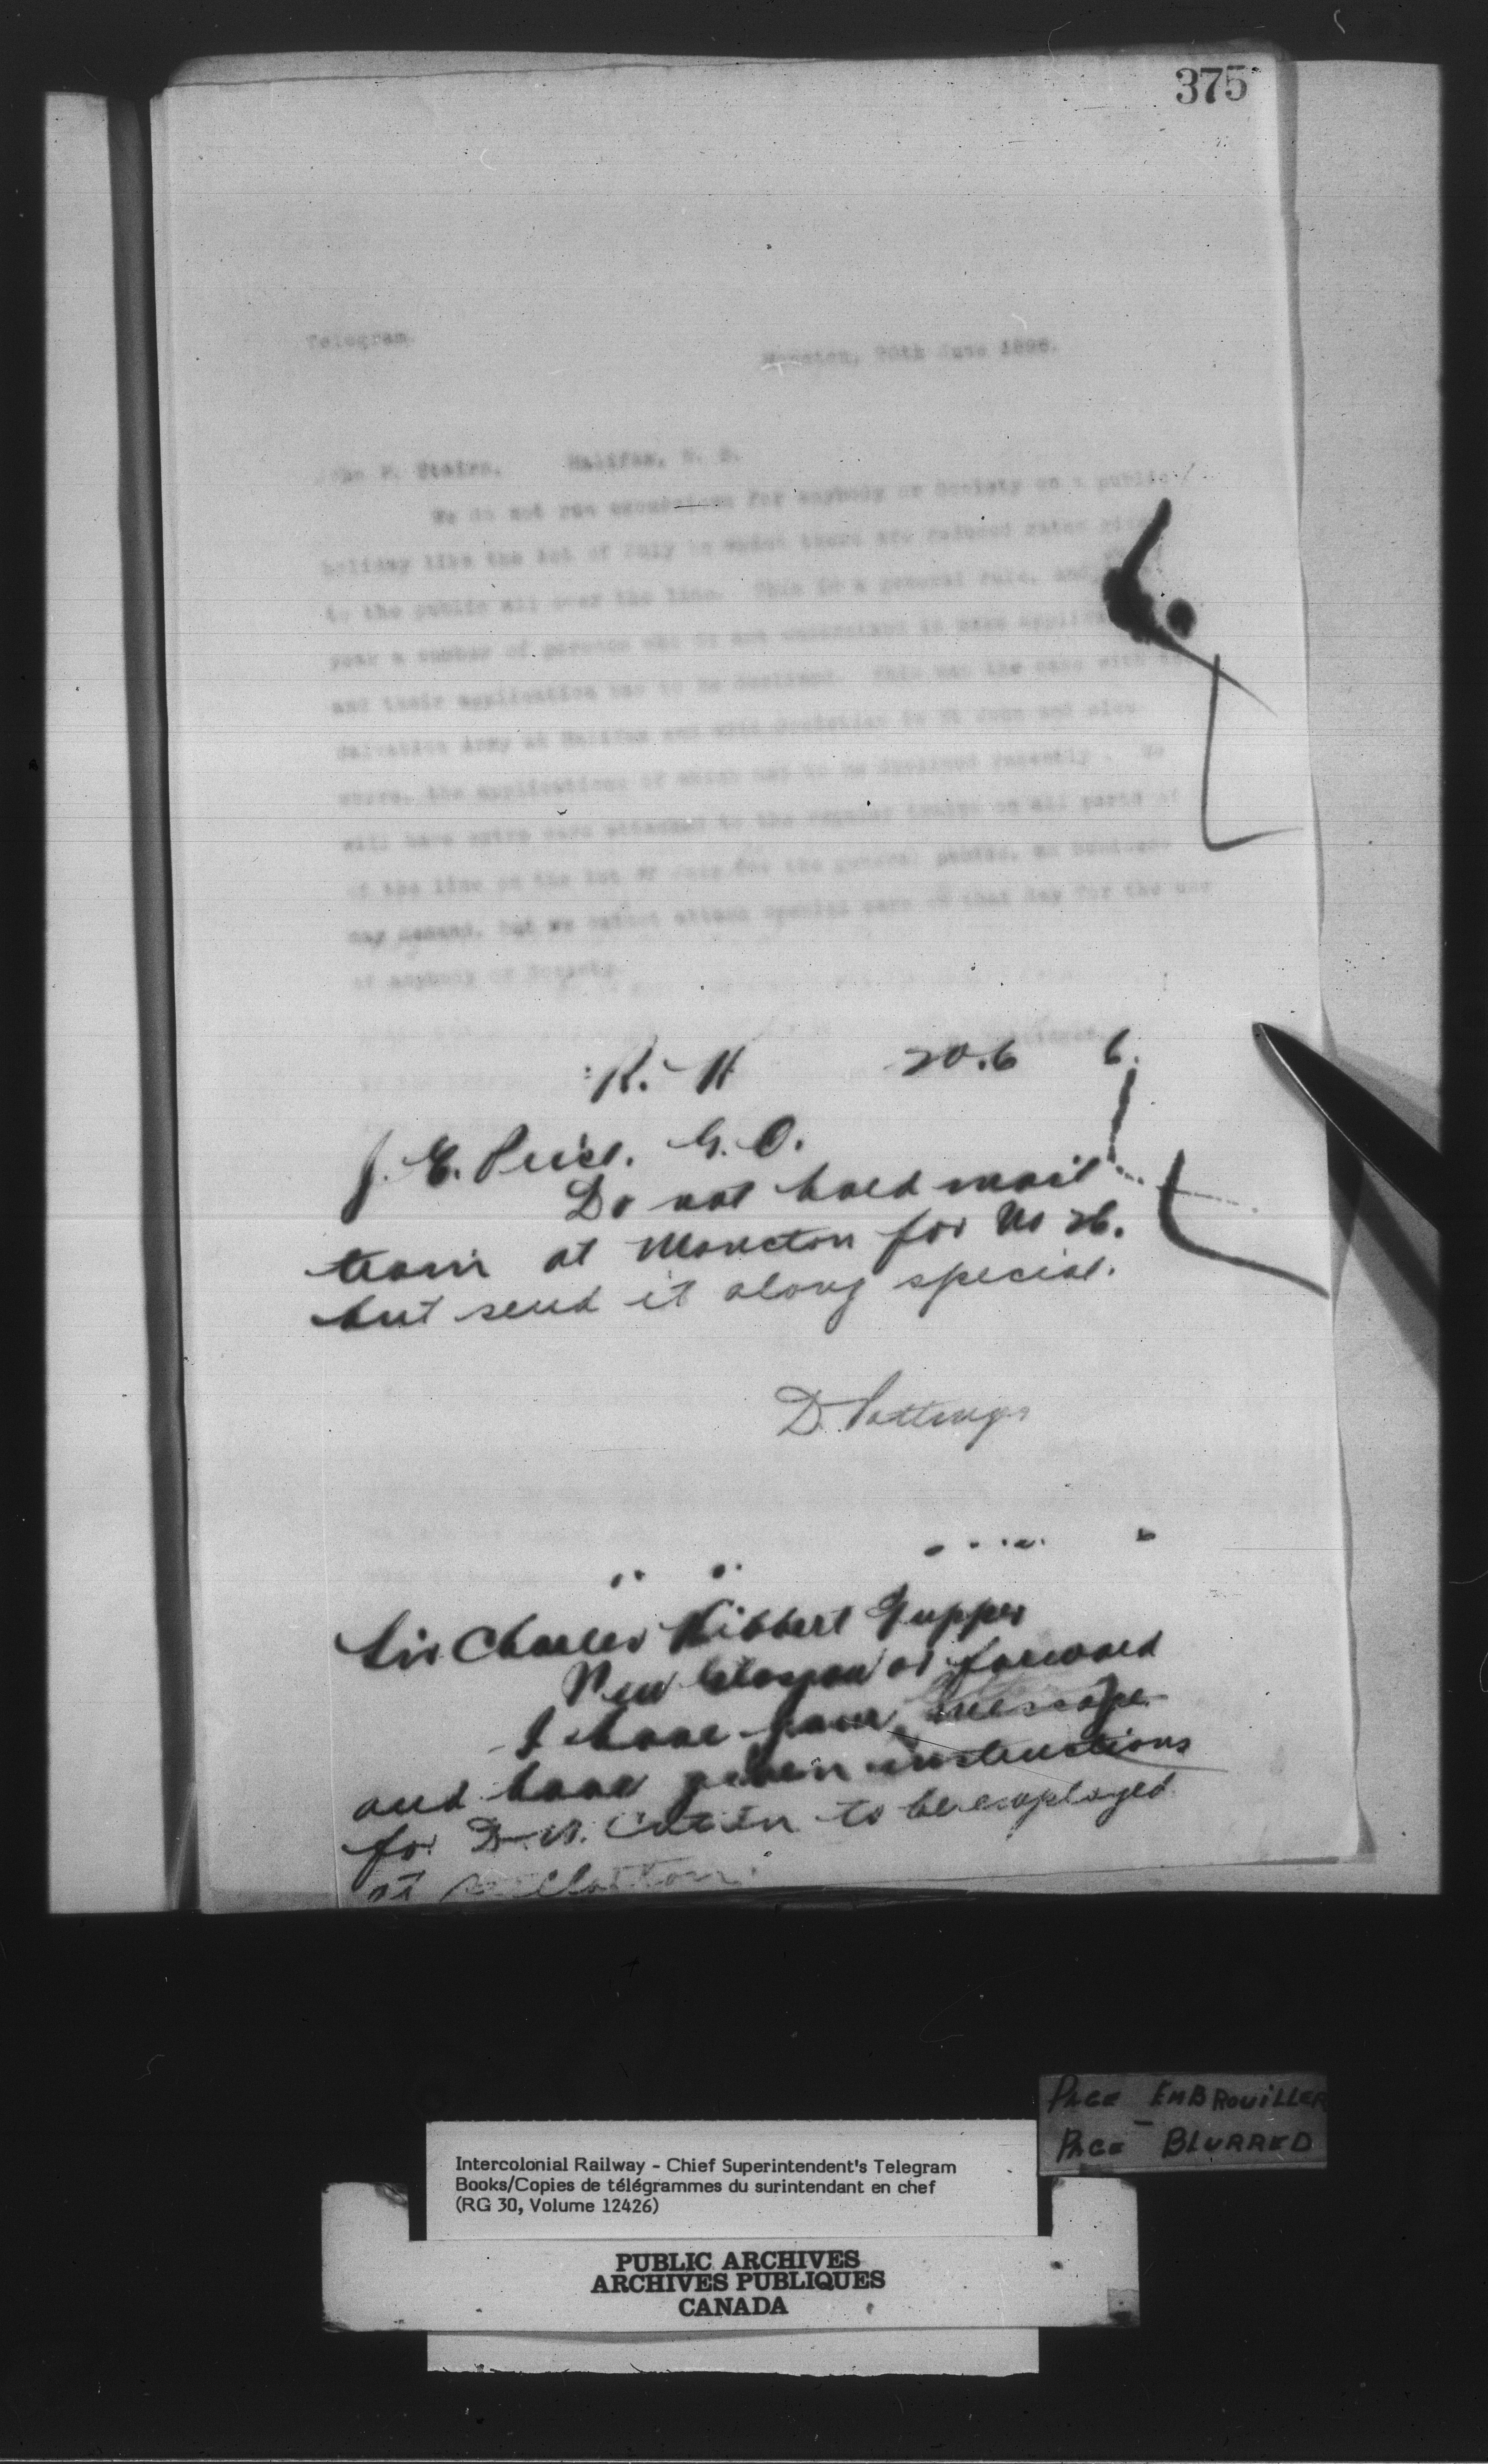 375
Telegram.
Moncton, 20th June 1896.
John F. Stairs. Halifax, N. S.
We do not run excursions for anybody or Society on a public
holiday like the 1st of July in which there are reduced rates
to the public all over the line. This is a general rule, and
year a number of persons who do not understand it make
and their application has to be declined. This was the case with
Salvation Army at Halifax and with Societies in St John and else
where, the applications of which had to be declined recently. We
will have extra cars attached to the regular trains on all parts of
of the line on the 1st of July for the general public, as business
may demand, but we cannot attach special cars on that day for the use
of anybody or Society.
R. H 20.6 6.
J. E. Price. G. O.
Do not hold mail
train at Moncton for No 26.
but send it along special.
D. Pottinger
Sir Charles Hibbert Tupper
New Glasgow or forward
I have your message
and have given instructions
for D. W. to be employed
at Stellarton.
PAGE EMBROUILLER
PAGE BLURRED
Intercolonial Railway - Chief Superintendent's Telegram
Books/Copies de télégrammes du surintendant en chef
(RG 30, Volume 12426)
PUBLIC ARCHIVES
ARCHIVES PUBLIQUES
CANADA